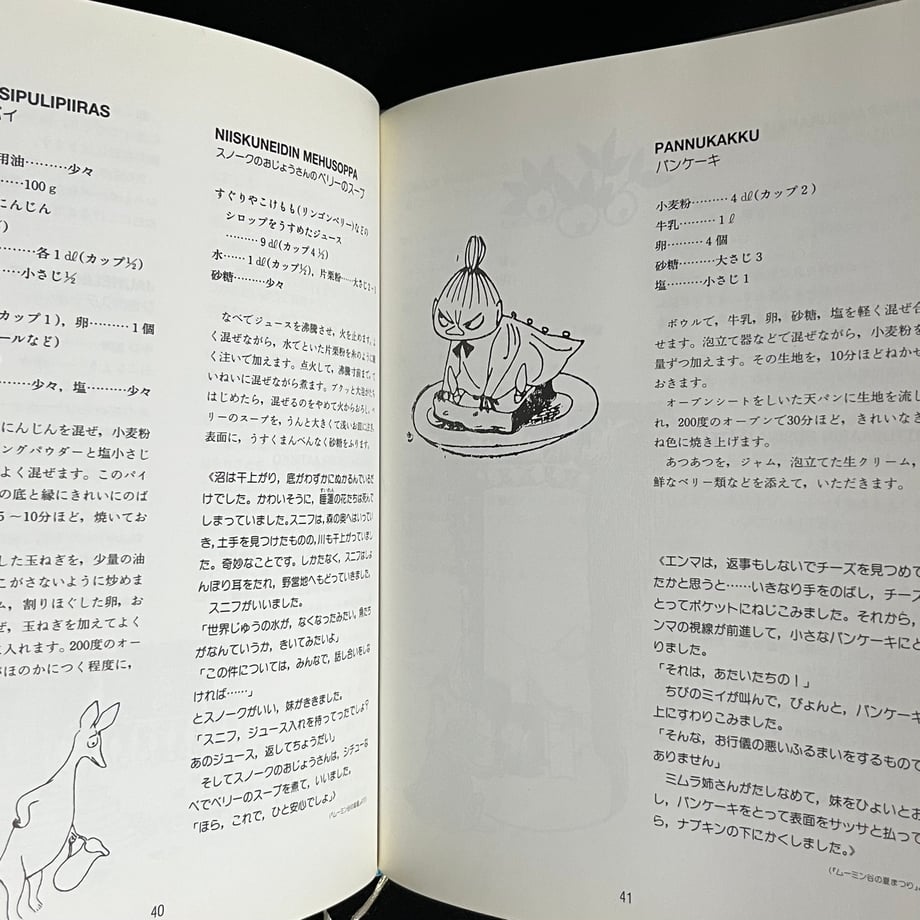 SIPULIPIIRAS
パイ
用油………少々
……100g
にんじん
………各1㎗(カップ½)
……小さじ½
カップ1)，卵………1個
ールなど)
………少々，塩……少々
にんじんを混ぜ，小麦粉
ングパウダーと塩小さじ
よく混ぜます。このパイ
の底と縁にきれいにのば
5～10分ほど，焼いてお
した玉ねぎを，少量の油
こがさないように炒めま
ム，割りほぐした卵，お
ぜ，玉ねぎを加えてよく
に入れます。200度のオー
がほのかにつく程度に，
NIISKUNEIDIN MEHUSOPPA
スノークのおじょうさんのベリーのスープ
すぐりやこけもも(リンゴンベリー)などの
シロップをうすめたジュース
………9㎗(カップ4½)
水……1㎗(カップ½)，片栗粉……大さじ2～
砂糖………少々
なべでジュースを沸騰させ，火を止めます。
く混ぜながら，水でといた片栗粉を糸のように細
く注いで加えます。点火して，沸騰寸前まで，
いねいに混ぜながら煮ます。プクッと大泡がたち
はじめたら，混ぜるのをやめて火からおろし，
リーのスープを，うんと大きくて浅いお皿に注ぎ，
表面に，うすくまんべんなく砂糖をふります。
《沼は干上がり，底がわずかにぬかるんでいるだ
けでした。かわいそうに，睡蓮の花たちは死んで
すいれん
しまっていました。スニフは，森の奥へはいってい
き，土手を見つけたものの，川も干上がっていまし
た。奇妙なことです。しかたなく，スニフはしょ
んぼり耳をたれ，野営地へもどっていきました。
スニフがいいました。
「世界じゅうの水が，なくなったみたい。魚たち
がなんていうか，きいてみたいよ」
「この件については，みんなで，話し合いをしな
ければ……」
とスノークがいい，妹がききました。
「スニフ，ジュース入れを持ってったでしょ？
あのジュース，返してちょうだい」
そしてスノークのおじょうさんは，シチューな
べでベリーのスープを煮て，いいました。
「ほら，これで，ひと安心でしょ」》
40
PANNUKAKKU
パンケーキ
小麦粉………4㎗(カップ2)
牛乳………1ℓ
卵………4個
砂糖………大さじ3
塩………小さじ1
ボウルで，牛乳，卵，砂糖，塩を軽く混ぜ合
せます。泡立て器などで混ぜながら，小麦粉を
量ずつ加えます。その生地を，10分ほどねかせ
おきます。
オーブンシートをしいた天パンに生地を流し
れ，200度のオーブンで30分ほど，きれいなき
ね色に焼き上げます。
あつあつを，ジャム，泡立てた生クリーム，
鮮なベリー類などを添えて，いただきます。
《エンマは，返事もしないでチーズを見つめて
たかと思うと……いきなり手をのばし，チーズ
とってポケットにねじこみました。それから，
ンマの視線が前進して，小さなパンケーキにと
りました。
「それは，あたいたちの！」
ちびのミイが叫んで，ぴょんと，パンケーキ
上にすわりこみました。
「そんな，お行儀の悪いふるまいをするもので
ありません」
ミムラ姉さんがたしなめて，妹をひょいとお
し，パンケーキをとって表面をサッサと払って
ら，ナプキンの下にかくしました。》
(『ムーミン谷の夏まつり』
41